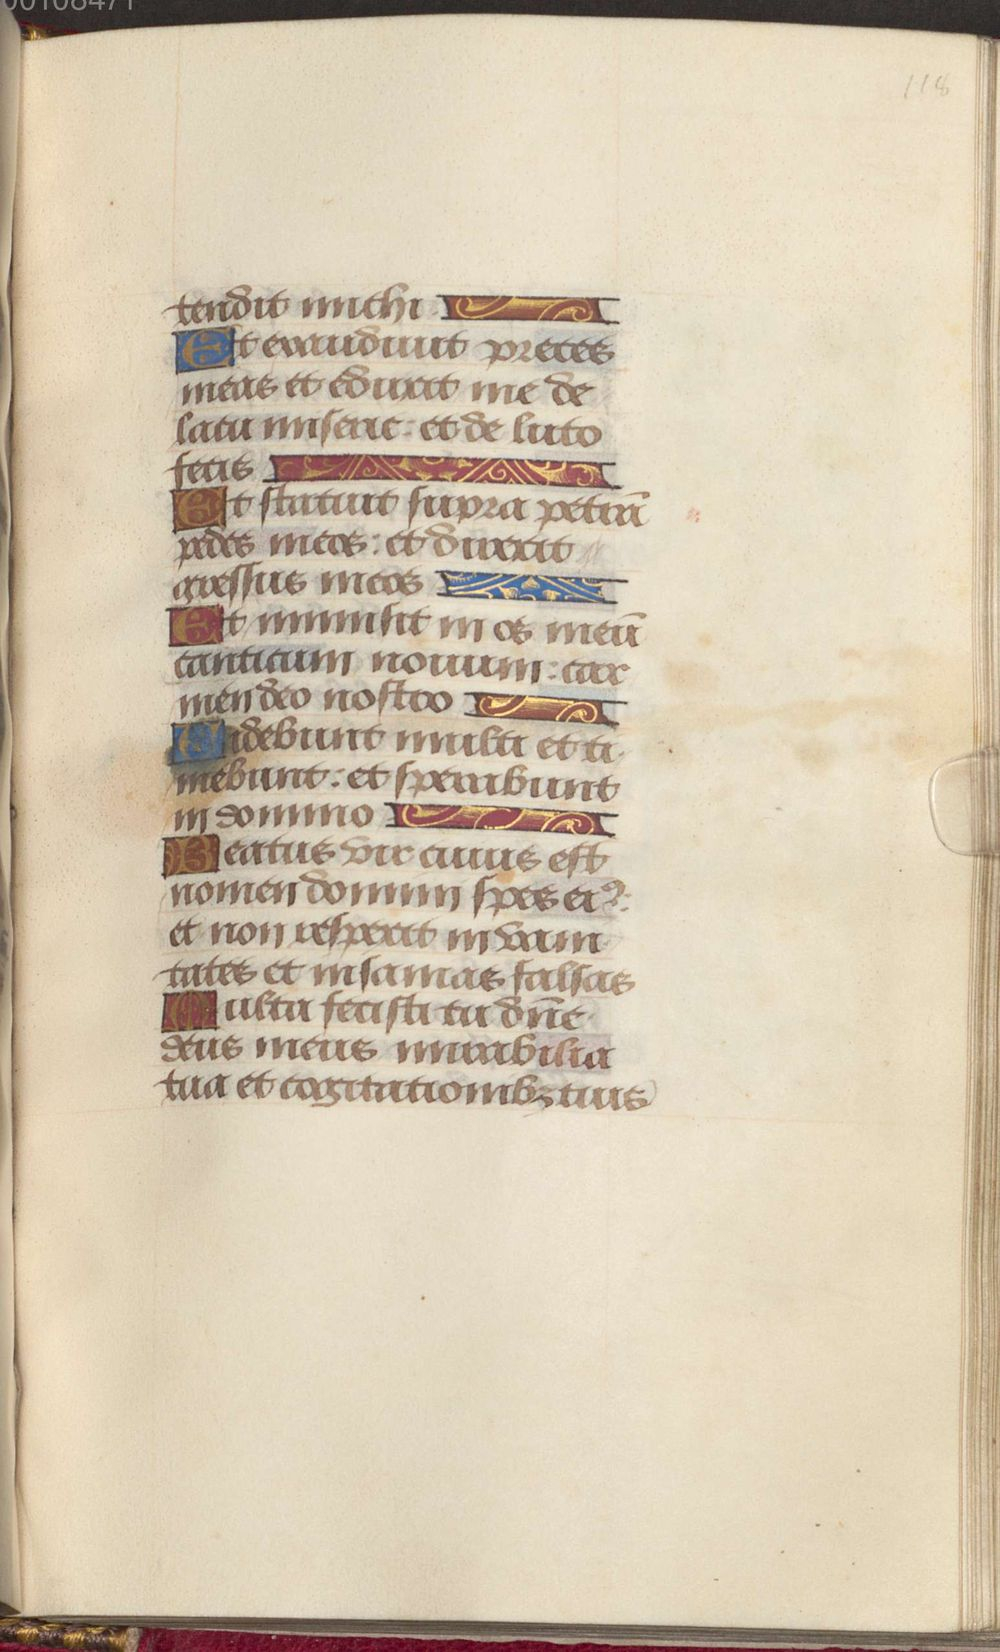 00108471
118
tendit michi
Et exaudiuit preces
meas et eduxit me de
lacu miserie: et de luto
fecis
Et statuit supra petrã
pedes meos: et direxit
gressus meos
Et immisit in os meũ
canticum nouum: car
men deo nostro
Uidebunt multi et ti
mebunt: et sperabunt
in domino
Beatus vir cuius est
nomen domini spes eiꝰ:
et non respexit in vani
tates et insanias falsas
Multa fecisti tu dñe
deus meus mirabilia
tua et cogitationibꝫ tuis